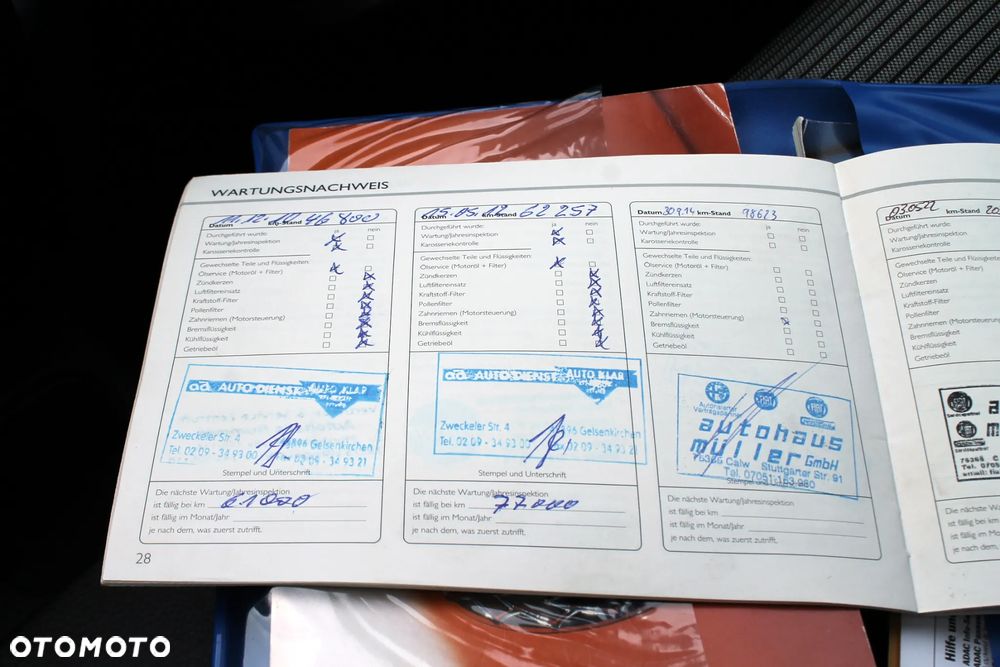 WARTUNGSNACHWEIS
Datum km-Stand 46 800
Durchgeführt wurde: ja nein
Wartung/Jahresinspektion
Karosseriekontrolle
Gewechselte Teile und Flüssigkeiten:
Ölservice (Motoröl + Filter)
Zündkerzen
Luftfiltereinsatz
Kraftstoff-Filter
Pollenfilter
Zahnriemen (Motorsteuerung)
Bremsflüssigkeit
Kühlflüssigkeit
Getriebeöl
ad AUTO DIENST AUTO KLAR
Zweckeler Str. 4 45896 Gelsenkirchen
Tel. 02 09 - 34 93 00 - 34 93 21
Stempel und Unterschrift
Die nächste Wartung/Jahresinspektion
ist fällig bei km 61000
ist fällig im Monat/Jahr
je nach dem, was zuerst zutrifft.
28
Datum km-Stand 62 257
Durchgeführt wurde: ja nein
Wartung/Jahresinspektion
Karosseriekontrolle
Gewechselte Teile und Flüssigkeiten:
Ölservice (Motoröl + Filter)
Zündkerzen
Luftfiltereinsatz
Kraftstoff-Filter
Pollenfilter
Zahnriemen (Motorsteuerung)
Bremsflüssigkeit
Kühlflüssigkeit
Getriebeöl
ad AUTO DIENST AUTO KLAR
Zweckeler Str. 4 45896 Gelsenkirchen
Tel. 02 09 - 34 93 00 - 34 93 21
Stempel und Unterschrift
Die nächste Wartung/Jahresinspektion
ist fällig bei km 77000
ist fällig im Monat/Jahr
je nach dem, was zuerst zutrifft.
Datum 30.9.14 km-Stand 98623
Durchgeführt wurde: ja nein
Wartung/Jahresinspektion
Karosseriekontrolle
Gewechselte Teile und Flüssigkeiten:
Ölservice (Motoröl + Filter)
Zündkerzen
Luftfiltereinsatz
Kraftstoff-Filter
Pollenfilter
Zahnriemen (Motorsteuerung)
Bremsflüssigkeit
Kühlflüssigkeit
Getriebeöl
FIAT
Autorisierter
Vertragspartner
autohaus
müller GmbH
75365 Calw Stuttgarter Str. 91
Tel. 07051-163 980
Stempel und Unterschrift
Die nächste Wartung/Jahresinspektion
ist fällig bei km
ist fällig im Monat/Jahr
je nach dem, was zuerst zutrifft.
Datum km-Stand
Durchgeführt wurde:
Wartung/Jahresinspektion
Karosseriekontrolle
Gewechselte Teile und Fl
Ölservice (Motoröl + Filter)
Zündkerzen
Luftfiltereinsatz
Kraftstoff-Filter
Pollenfilter
Zahnriemen (Motorsteuerung)
Bremsflüssigkeit
Kühlflüssigkeit
Getriebeöl
Die nächste Wa
ist fällig bei km
ist fällig im Mo
je nach dem,
Hilfe un
ADAC Info-Se
ADAC Pannen
OTOMOTO